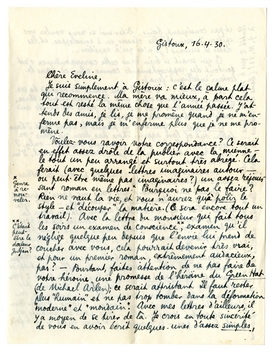 Gistoux, 16-4-30.
Chère Eveline,
Je suis simplement à Gistoux: c'est le calme plat
qui recommence. Ma mère va mieux, à part cela
tout est resté la même chose que l'année passée. J'at-
tends des amis, je lis, je me promène quand je ne m'en-
ferme pas, mais je m'enferme plus que je ne me pro-
mène.
Voulez-vous ravoir notre correspondance? Ce serait
en effet assez drôle de la publier avec la mienne -
le tout un peu arrangé et surtout très abrégé. Cela
ferait (avec quelques lettres imaginaires autour -
ou peut être même pas imaginaires?) un assez
san roman en lettres. Pourquoi ne pas le faire?
Rien ne vaut la vie, et nous n'aurez qu'à polir le
style - et découper la matière. (Ce sera encore tout un
travail). Avec la lettre du monsieur que fait tous
les soirs un examen de conscience, examen qu'il
néglige quelque peu depuis que l'envie lui prend de
coucher avec vous, cela pourrait devenir très vrai,
et pour un premier roman, extrêmement audacieux,
pas? - Pourtant, faites attention de ne pas faire de
votre héroïne une promesse de l'héroïne du Green Hat
(de Michael Arlen); ce serait attristant. Il faut rester
plus humain et ne pas trop tomber dans la déformation
"moderne" et "mondain". Avec mes lettres d'ailleurs, il
y a moyen de se tirer de là. Je crois en toute sincérité
de vous en avoir écrit quelques-unes d'assez simples,